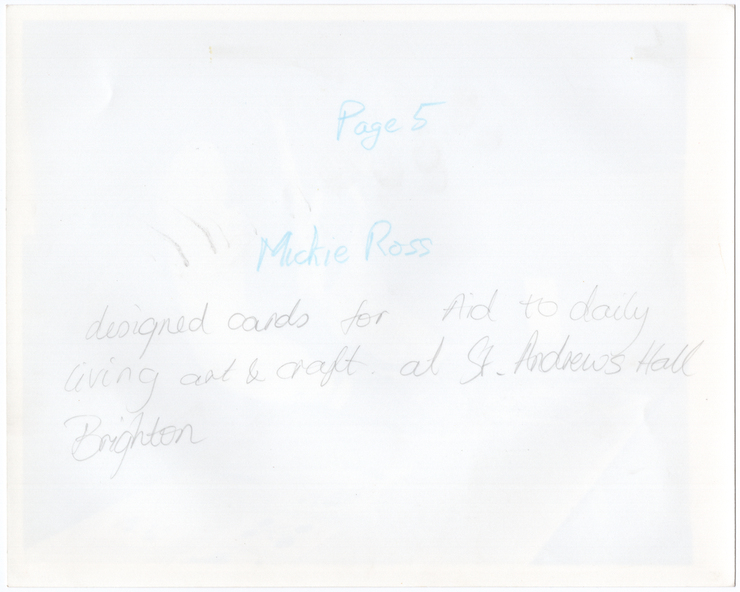 Page 5
Mickie Ross
designed cards for Aid to daily
living art & craft. at St. Andrews Hall
Brighton